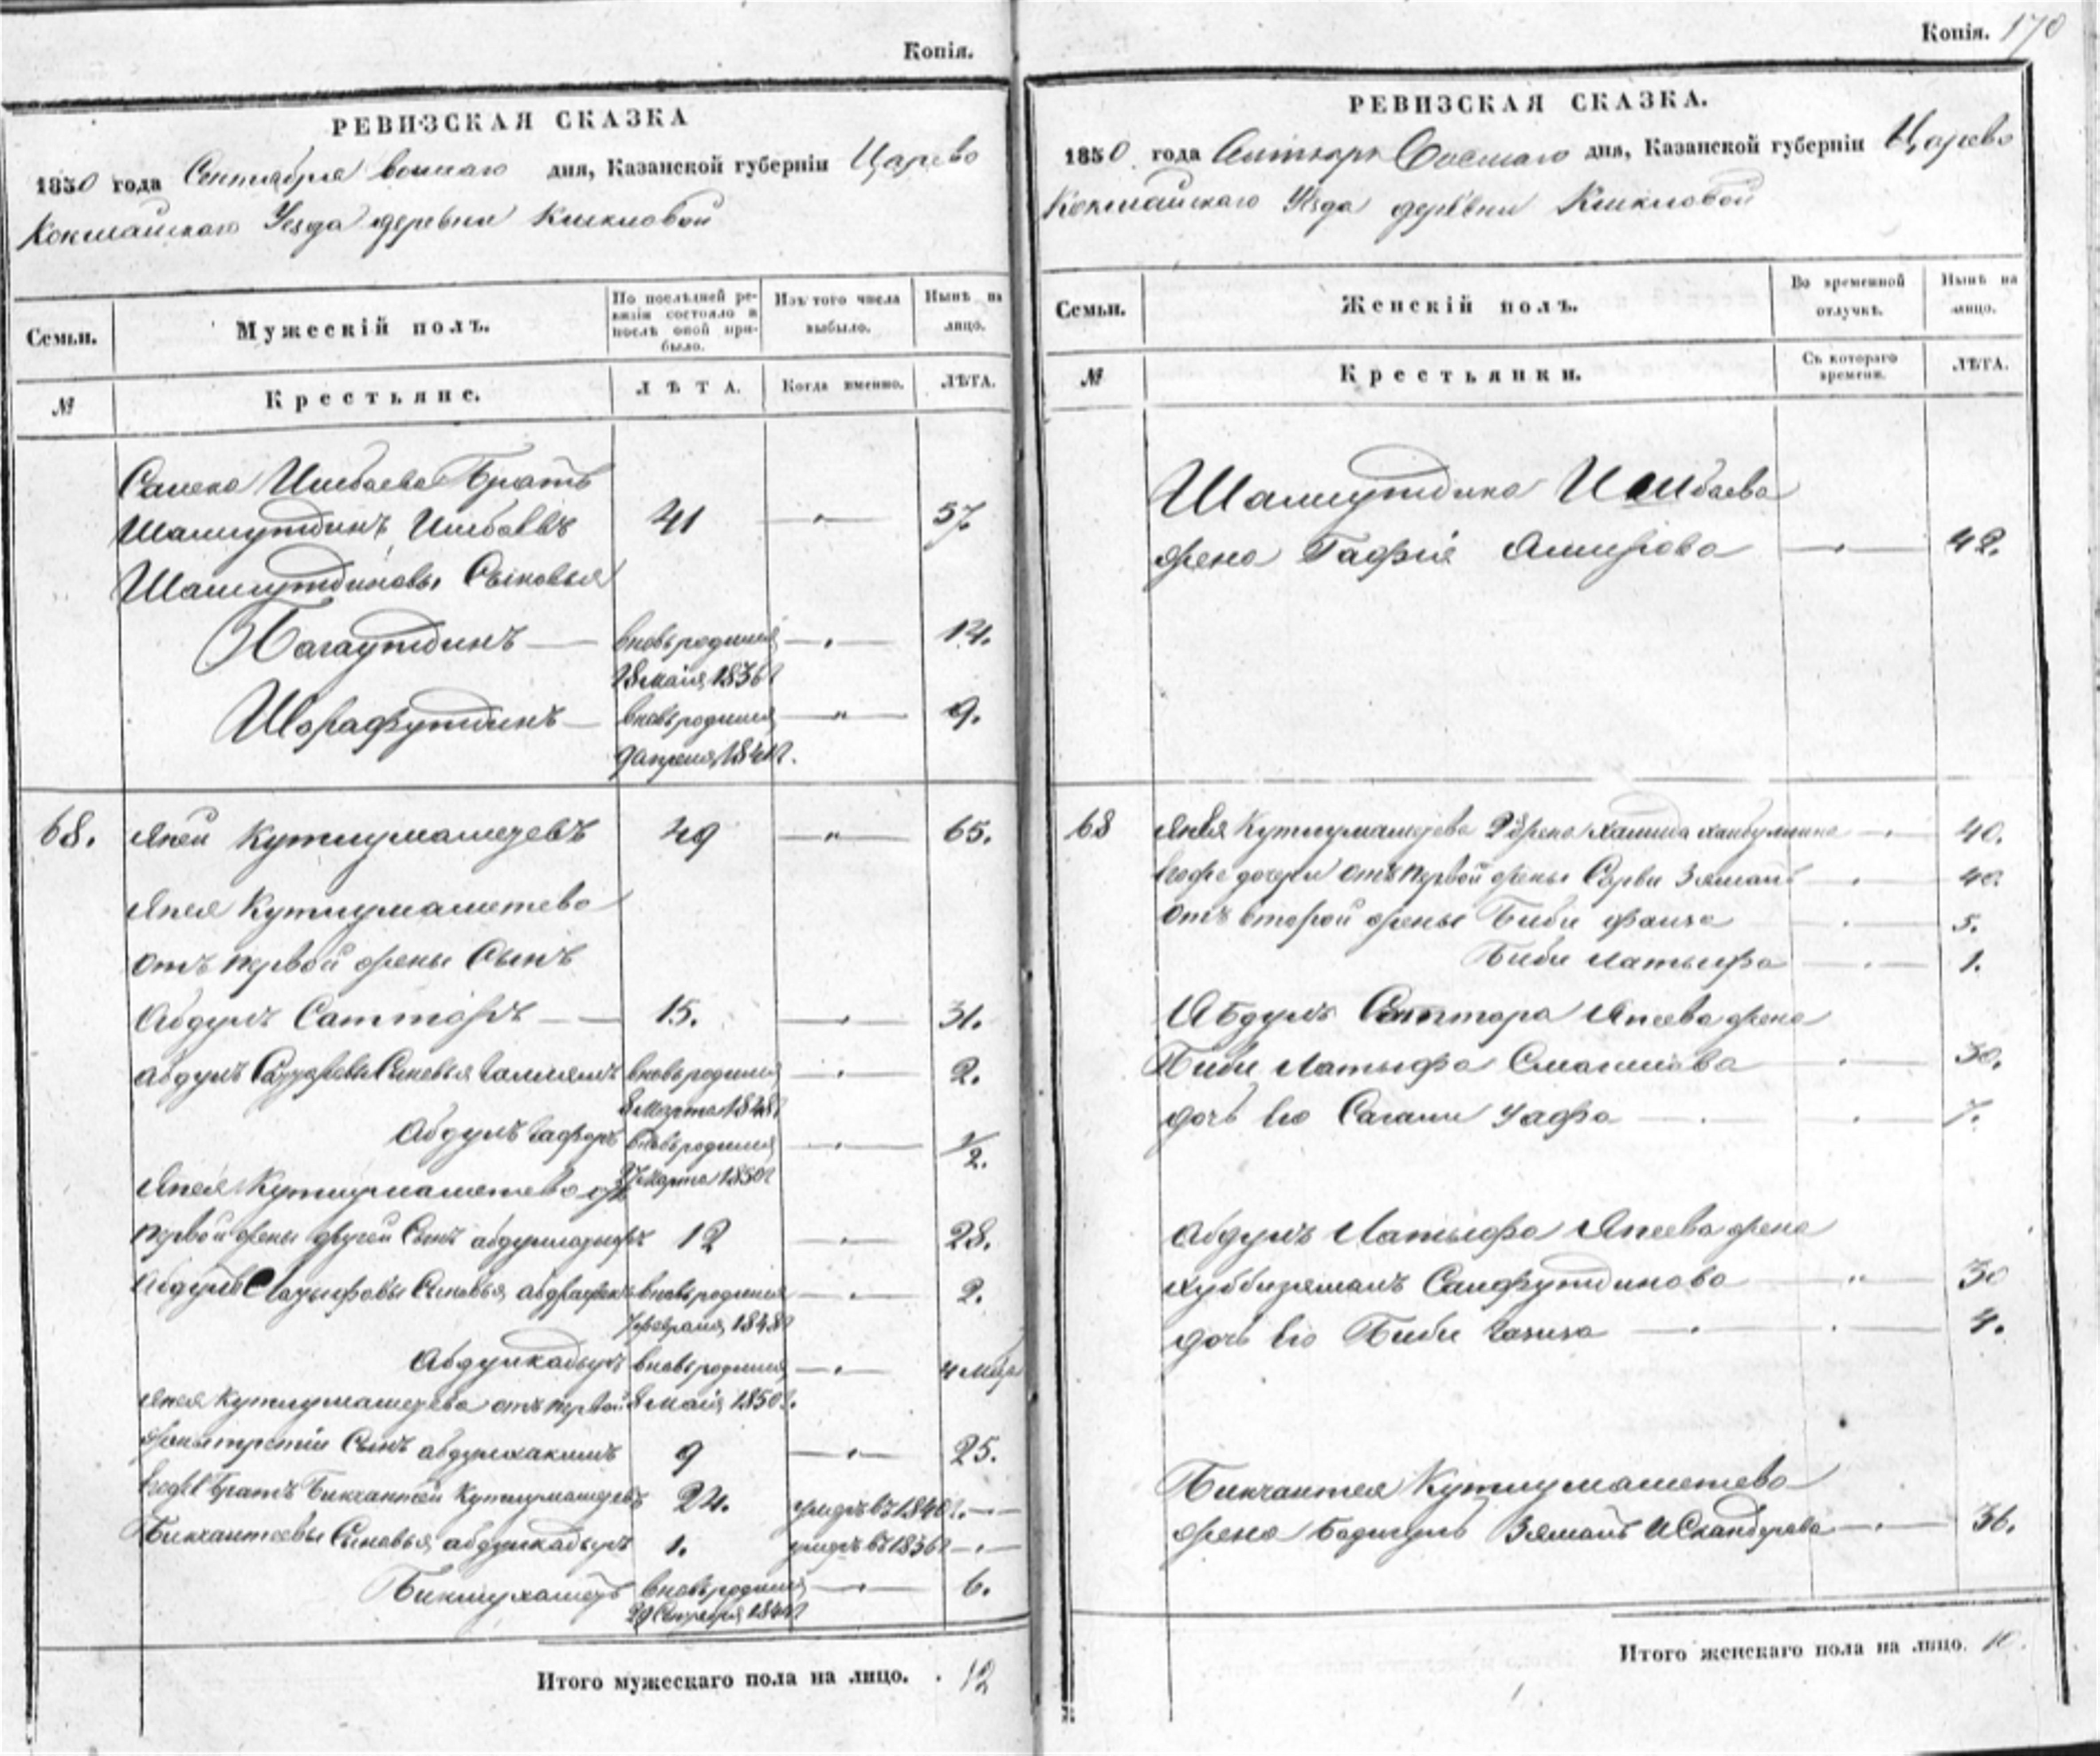 Копія.
РЕВИЗСКАЯ СКАЗКА
1850 года Сентября восмаго дня, Казанской губерніи Царево
Кокшайскаго Уезда деревни Кшкловой
Семьи.
Мужескій полъ.
По послѣдней ревизіи состояло и послѣ оной прибыло.
Изъ того числа выбыло.
Нынѣ на лицо.
№
Крестьяне.
ЛѢТА.
Когда именно.
ЛѢТА.
Ишбаева Братъ
Шамсутдинъ Ишбаевъ 41 — " — 57.
Шамсутдиновы Сыновья
Багаутдинъ — вновь родился — " — 14.
28 маія 1836 г
Шарафутдинъ — вновь родился — " — 9.
9 апреля 1841 г.
68. Япей Кутлумаметевъ 49 — " — 65.
Япея Кутлумаметева
отъ первой жены Сынъ
Абдулъ Саттаръ — 15. — " — 31.
Абдулъ Сыновья вновь родился — " — 2.
8 Марта 1848 г
Абдулъ Гафаръ вновь родился — " — 1/2.
27 марта 1850 г
Япея Кутлумаметева отъ
первой жены другой Сынъ 12 — " — 28.
Сыновья вновь родился — " — 2.
7 февраля 1848 г
Абдулкадыръ вновь родился — " — 4 мѣс
Япея Кутлумаметева отъ первой 8 маія 1850 г.
жены третій Сынъ абдулхакимъ 9 — " — 25.
Братъ Бикчантей Кутлумаметевъ 24. умеръ въ 1840 г. — " —
Бикчантеевы Сыновья абдулкадыръ 1. умеръ въ 1836 г — " —
Бикмухаметъ вновь родился — " — 6.
29 1844 г
Итого мужескаго пола на лицо. 12
Копія. 170
РЕВИЗСКАЯ СКАЗКА.
1850 года Сентября Восмаго дня, Казанской губерніи Царево
Кокшайскаго Уезда деревни Кшкловой
Семьи.
Женскій полъ.
Во временной отлучкѣ.
Нынѣ на лицо.
№
Крестьянки.
Съ котораго времени.
ЛѢТА.
Шамсутдина Ишбаева
жена Гафія Амирова — " — 42.
68 Япея Кутлумаметева 2 жена — " — 40.
дочери отъ первой жены Сарви Зяманъ — " — 40.
отъ второй жены Биби фаиза — " — 5.
Биби Латыфа — " — 1.
Абдулъ Саттара Япеева жена
Биби Латыфа Смаилова — " — 30.
дочь его — " — 7.
Абдулъ Латыфа Япеева жена
Хуббизяманъ Саифутдинова — " — 30
дочь его Биби Газиза — " — 4.
Бикчантея Кутлумаметева
жена Бадигулъ Зяманъ Искандерова — " — 36.
Итого женскаго пола на лицо. 10.